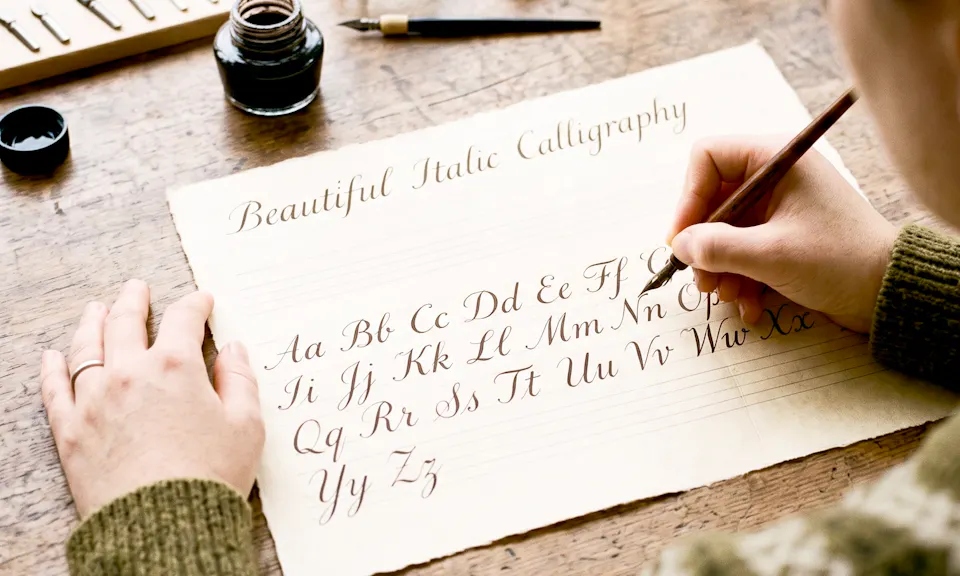 Beautiful Italic Calligraphy
Aa Bb Cc Dd Ee Ff
Ii Jj Kk Ll Mm Nn Op
Qq Rr Ss Tt Uu Vv Ww Xx
Yy Zz